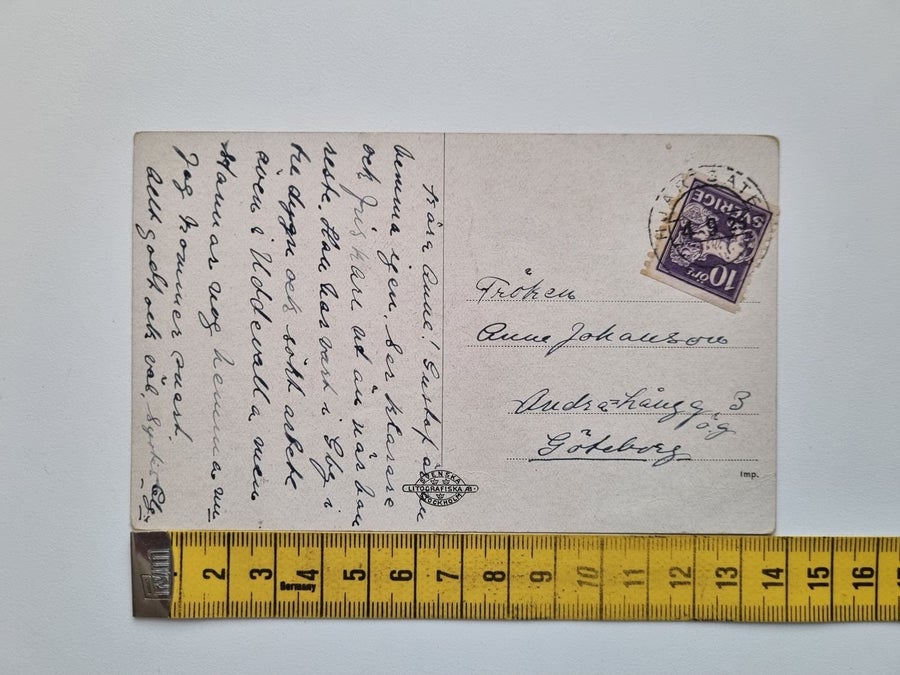 Kära Anna! Gustaf är nu
hemma igen. Ser klarare
och friskare ut än när han
reste. Han har varit i Gbg i
tre dygn och sökt arbete
även i Uddevalla men
stannar nog hemma nu
Jag kommer snart.
Allt godt och väl,
Fröken
Anna Johanson
Andra Långg. 3
ö.g
Göteborg
SVERIGE
10 ÖRE
SVENSKA
LITOGRAFISKA AB
STOCKHOLM
Imp.
2 3 4 5 6 7 8 9 10 11 12 13 14 15 16
Germany